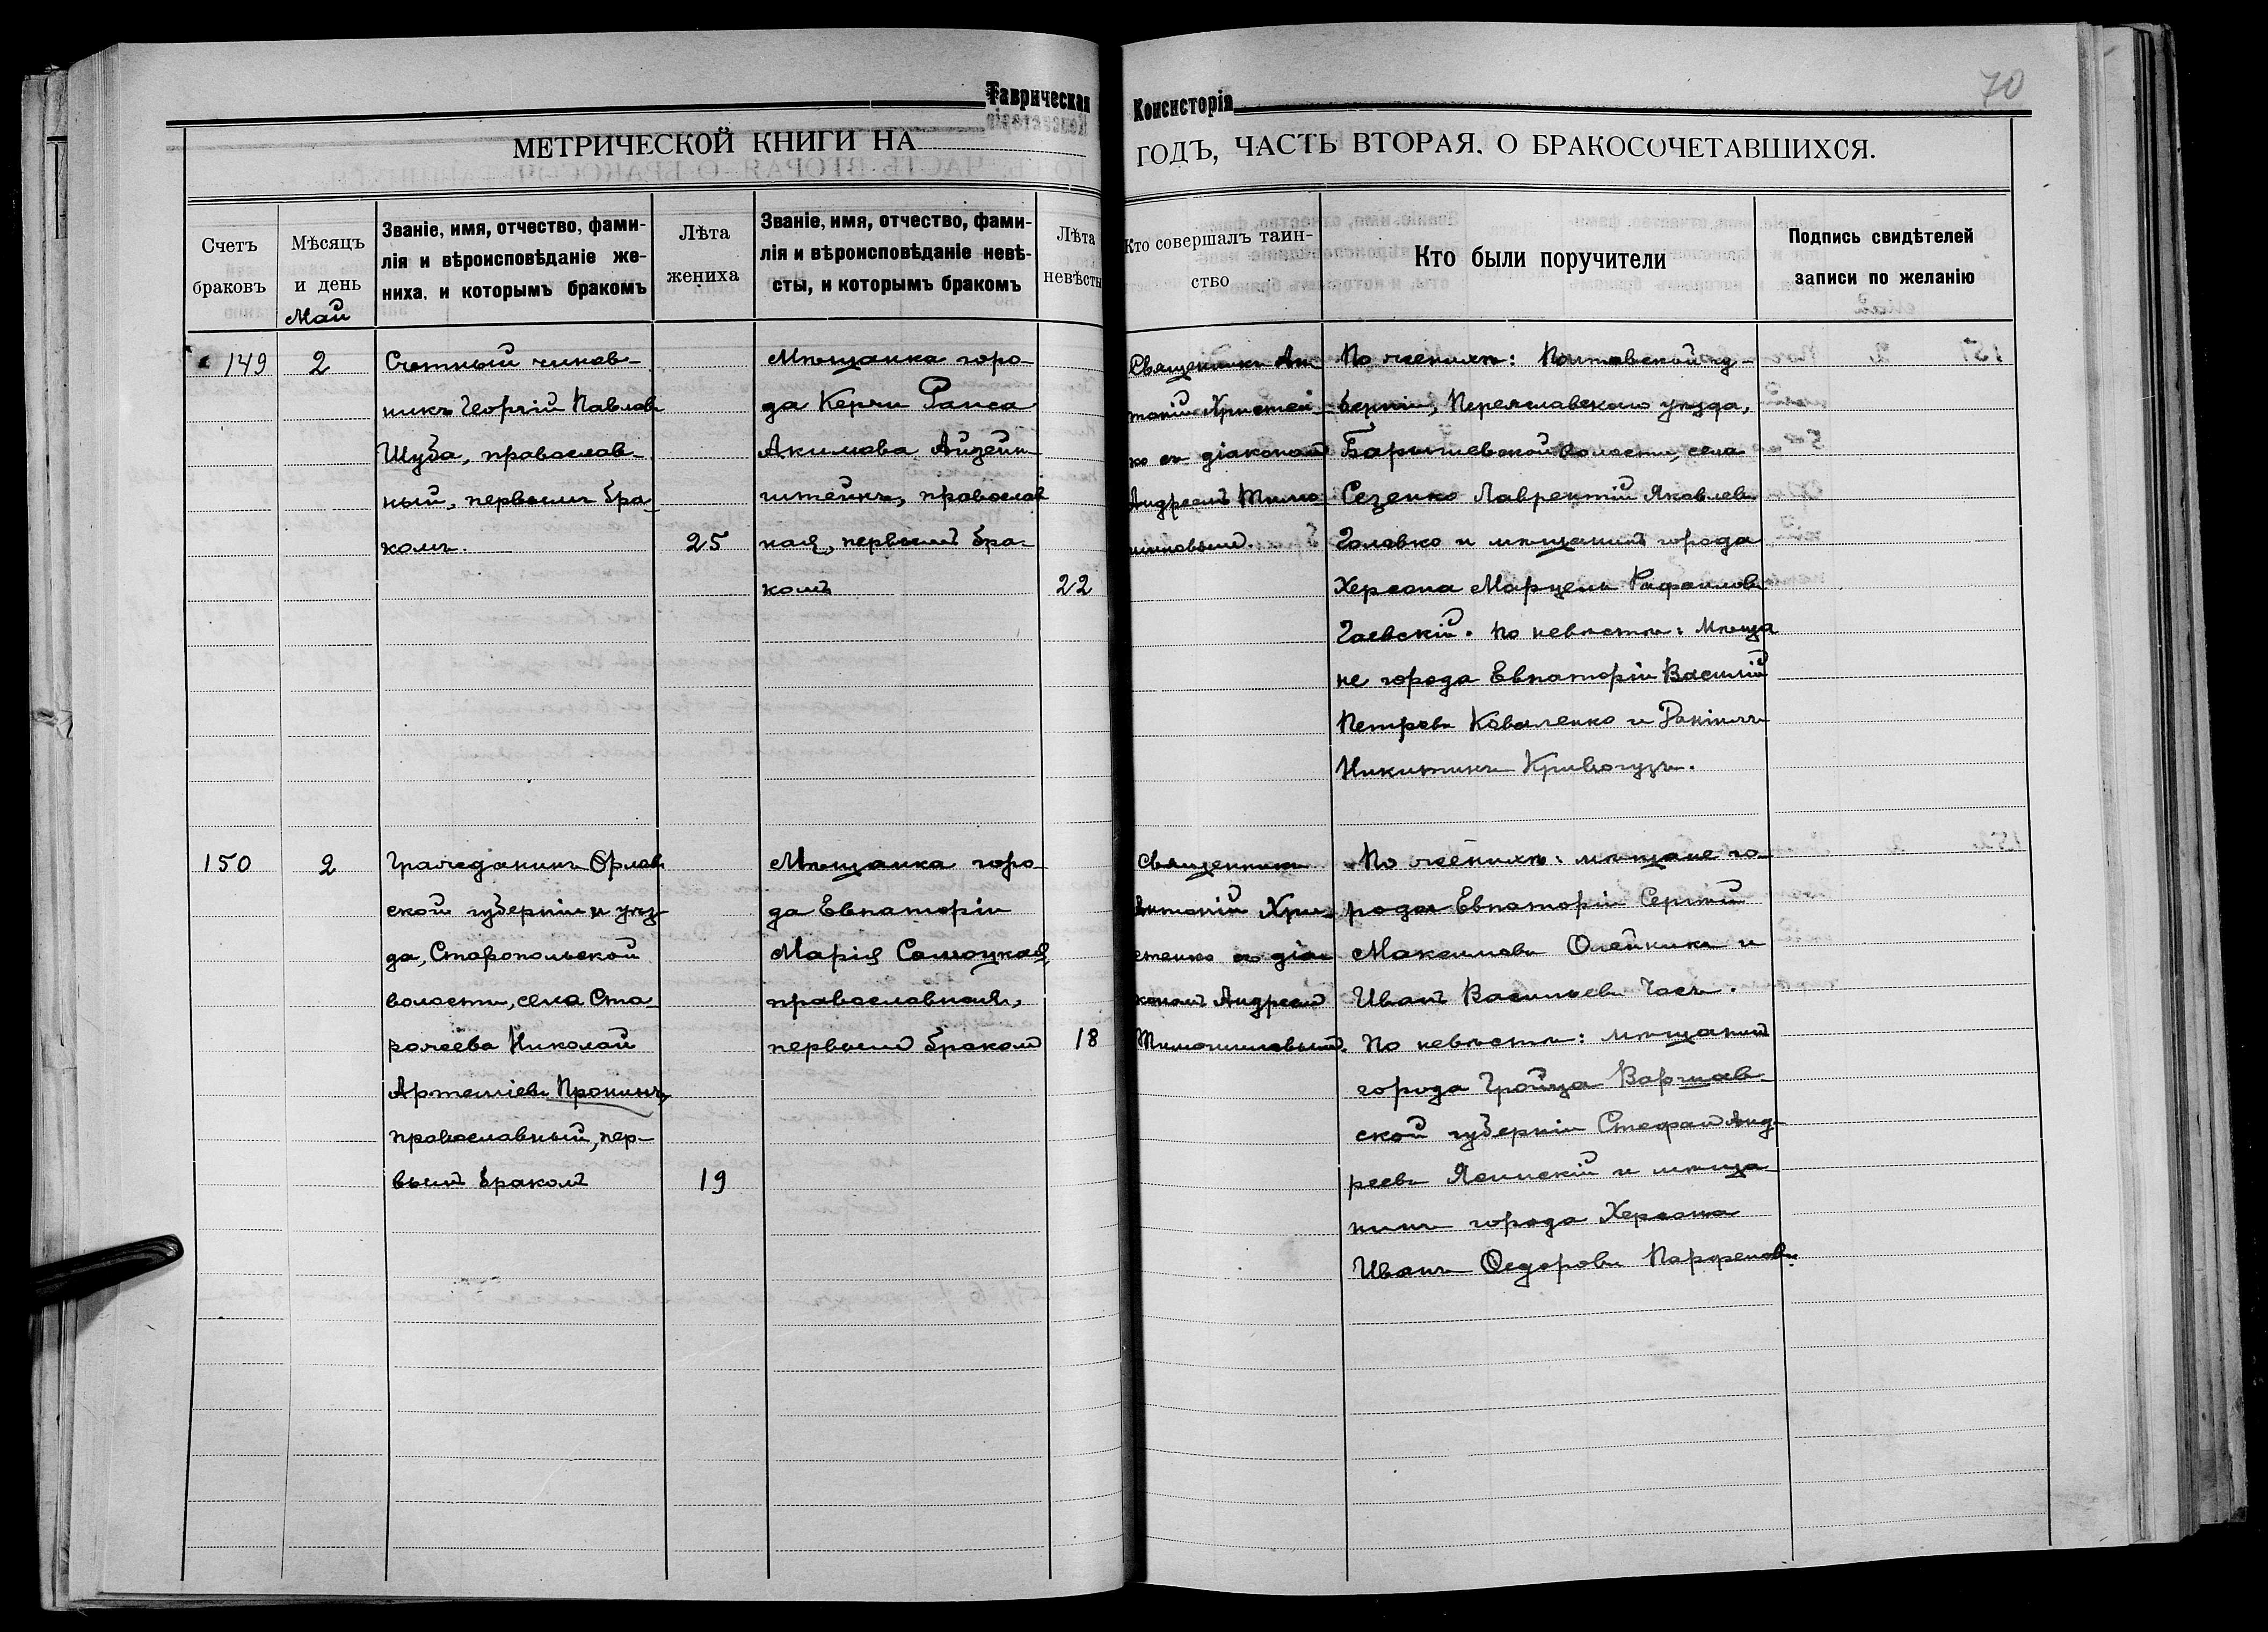 Таврическая
Консисторія
70
МЕТРИЧЕСКОЙ КНИГИ НА
ГОДЪ, ЧАСТЬ ВТОРАЯ. О БРАКОСОЧЕТАВШИХСЯ.
Счетъ
браковъ
Мѣсяцъ
и день
Май
Званіе, имя, отчество, фами-
лія и вѣроисповѣданіе же-
ниха, и которымъ бракомъ
Лѣта
жениха
Званіе, имя, отчество, фами-
лія и вѣроисповѣданіе невѣ-
сты, и которымъ бракомъ
Лѣта
невѣсты
Кто совершалъ таин-
ство
Кто были поручители
Подпись свидѣтелей
записи по желанію
149
2
Счетный чинов-
никъ Георгій Павловъ
Шуба, православ-
ный, первымъ бра-
комъ.
25
Мѣщанка горо-
да Керчи Раиса
Акимова Айзен-
штейнъ, православ
ная, первымъ бра-
комъ
22
Священникъ Ан-
тоній Христен-
ко съ діакономъ
Андреемъ Тимо-
шиновымъ.
По женихѣ: Полтавской гу-
берніи, Переяславскаго уѣзда,
Барышевской волости, села
Сезенко Лаврентій Яковлевъ
Головко и мѣщанинъ города
Херсона Марцель Рафаиловъ
Гаевскій. По невѣстѣ: Мѣща
не города Евпаторіи Василій
Петровъ Коваленко и
Никитинъ Кривогузъ.
150
2
Гражданинъ Орлов
ской губерніи и уѣз-
да, Старопольской
волости, села Ста-
Николай
Артеміевъ Пронинъ,
православный, пер-
вымъ бракомъ
19
Мѣщанка горо-
да Евпаторіи
Марія Самоцкая,
православная,
первымъ бракомъ
18
Священникъ
Антоній Хри-
стенко съ діа-
кономъ Андреемъ
Тимошиновымъ.
По женихѣ: мѣщане го-
рода Евпаторіи Сергѣй
Максимовъ Олейникъ и
Иванъ Васильевъ Часъ.
По невѣстѣ: мѣщанинъ
города Гройца Варшав-
ской губерніи Стефанъ Анд-
реевъ Ясинскій и мѣща-
нинъ города Херсона
Иванъ Ѳедоровъ Парфеновъ.